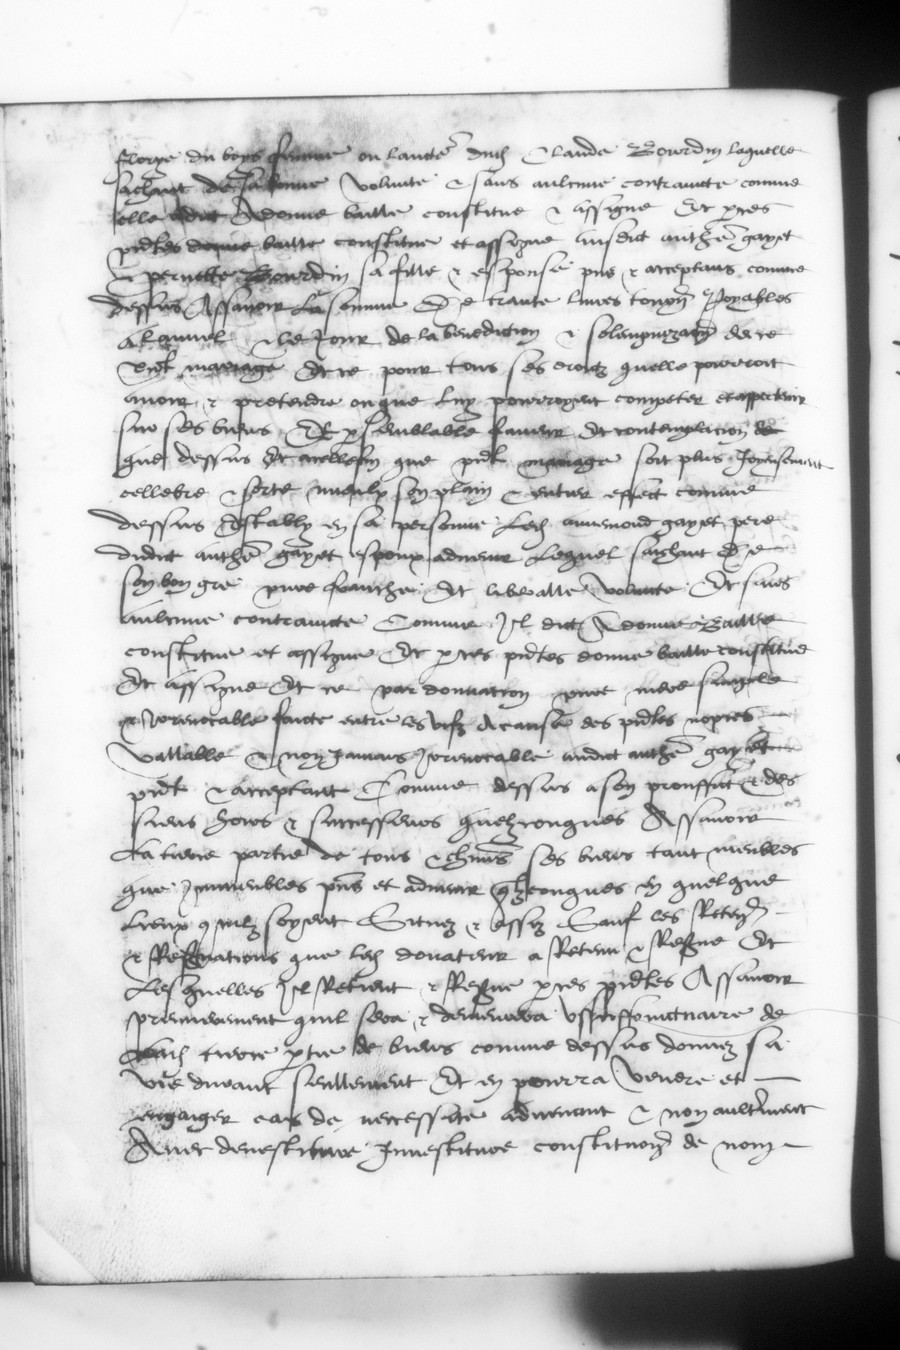 florye du boys femme en laucte dudt Claude Bourdin laquelle
saichant de sa bonne volunte & sans aulcune contraincte comme
elle dict A donne baille constitue & assigne Et par ces
pntes donne baille constitue et assigne ausdict anthe gayet
& pernette Bourdin sa fille & esponse pns & acceptans comme
dessus Assavoir La somme De trante livres tournoys Payables
a le Jour de la benediction & solempnizaon de ce
pnt mariage Et ce pour tous ses droictz quelle pourroit
avoir & pretendre ou que luy pourroyent competer et appertenir
sur ses biens Et par semblable faveur et contemplacion
que dessus Et acellefin que pnt mariage soit plus Joyeusement
cellebre & sorte mieulx son plain & entier effect comme
dessus Establly en sa personne Led annemond gayet pere
dudict anthe gayet espoux advenir Lequel saichant De
son bon gre pure franche Et liberalle volunte Et sans
aulcune contraincte Comme Il dict A donne Baille
constitue et assigne Et par ces pntes donne baille constitue
Et assigne Et ce par donnation pure mere simple
& Irrevocable faicte entre les vifz a cause des pntes nopces
vallable & non Jamais Irrevocable audict anthe gayet
pnt & acceptant Comme dessus a son prouffict & des
siens hoirs & successeurs quelzconques Assavoir
La tierce partie de tous & chuns ses biens tant meubles
que Immeubles pns et advenir qlzconques En quelque
Lieux quilz soyent Situez & assiz Sauf les Retenons
& Reservations que led donateur a Retenu & Reserve Et
Lesquelles Il Retient & Reserve par ces pntes Assavoir
premierement quil sera & demeurera Ussuffructuaire de
lad tierce partie de biens comme dessus donnez sa
vie durant seullement Et en pourra vendre et
engaiger cas de necessite advenant & non aultrement
Avec devestiture Investiture constitution de nom